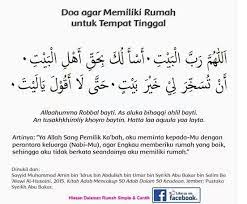 Doa agar Memiliki Rumah
untuk Tempat Tinggal
اَللّٰهُمَّ رَبَّ الْبَيْتِ، أَسْأَلُكَ بِحَقِّ أَهْلِ الْبَيْتِ،
أَنْ تُسَخِّرَ لِيْ خَيْرَ بَيْتٍ، حَتَّى لَا أَقُوْلَ يَالَيْتَ،
Allaahumma Robbal bayti. As aluka bihaqqi ahlil bayti.
An tusakhkhiroliy khoyro baytin. Hatta laa aquula yaa layta.
Artinya: "Ya Allah Sang Pemilik Ka'bah, aku meminta kepada-Mu dengan
perantara keluarga (Nabi-Mu), agar Engkau memberiku rumah yang baik,
sehingga aku tidak berkata seandainya aku memiliki rumah."
Dinukil dari:
Sayyid Muhammad Amin bin 'Idrus bin Abdullah bin Umar bin Syeikh Abu Bakar bin Salim Ba
'Alawi Al-Husaini. 2015. Kitab Adab Mencakup 50 Adab Dalam 50 Keadaan. Jember: Pustaka
Syeikh Abu Bakar.
Hiasan Dalaman Rumah Simple & Cantik
facebook